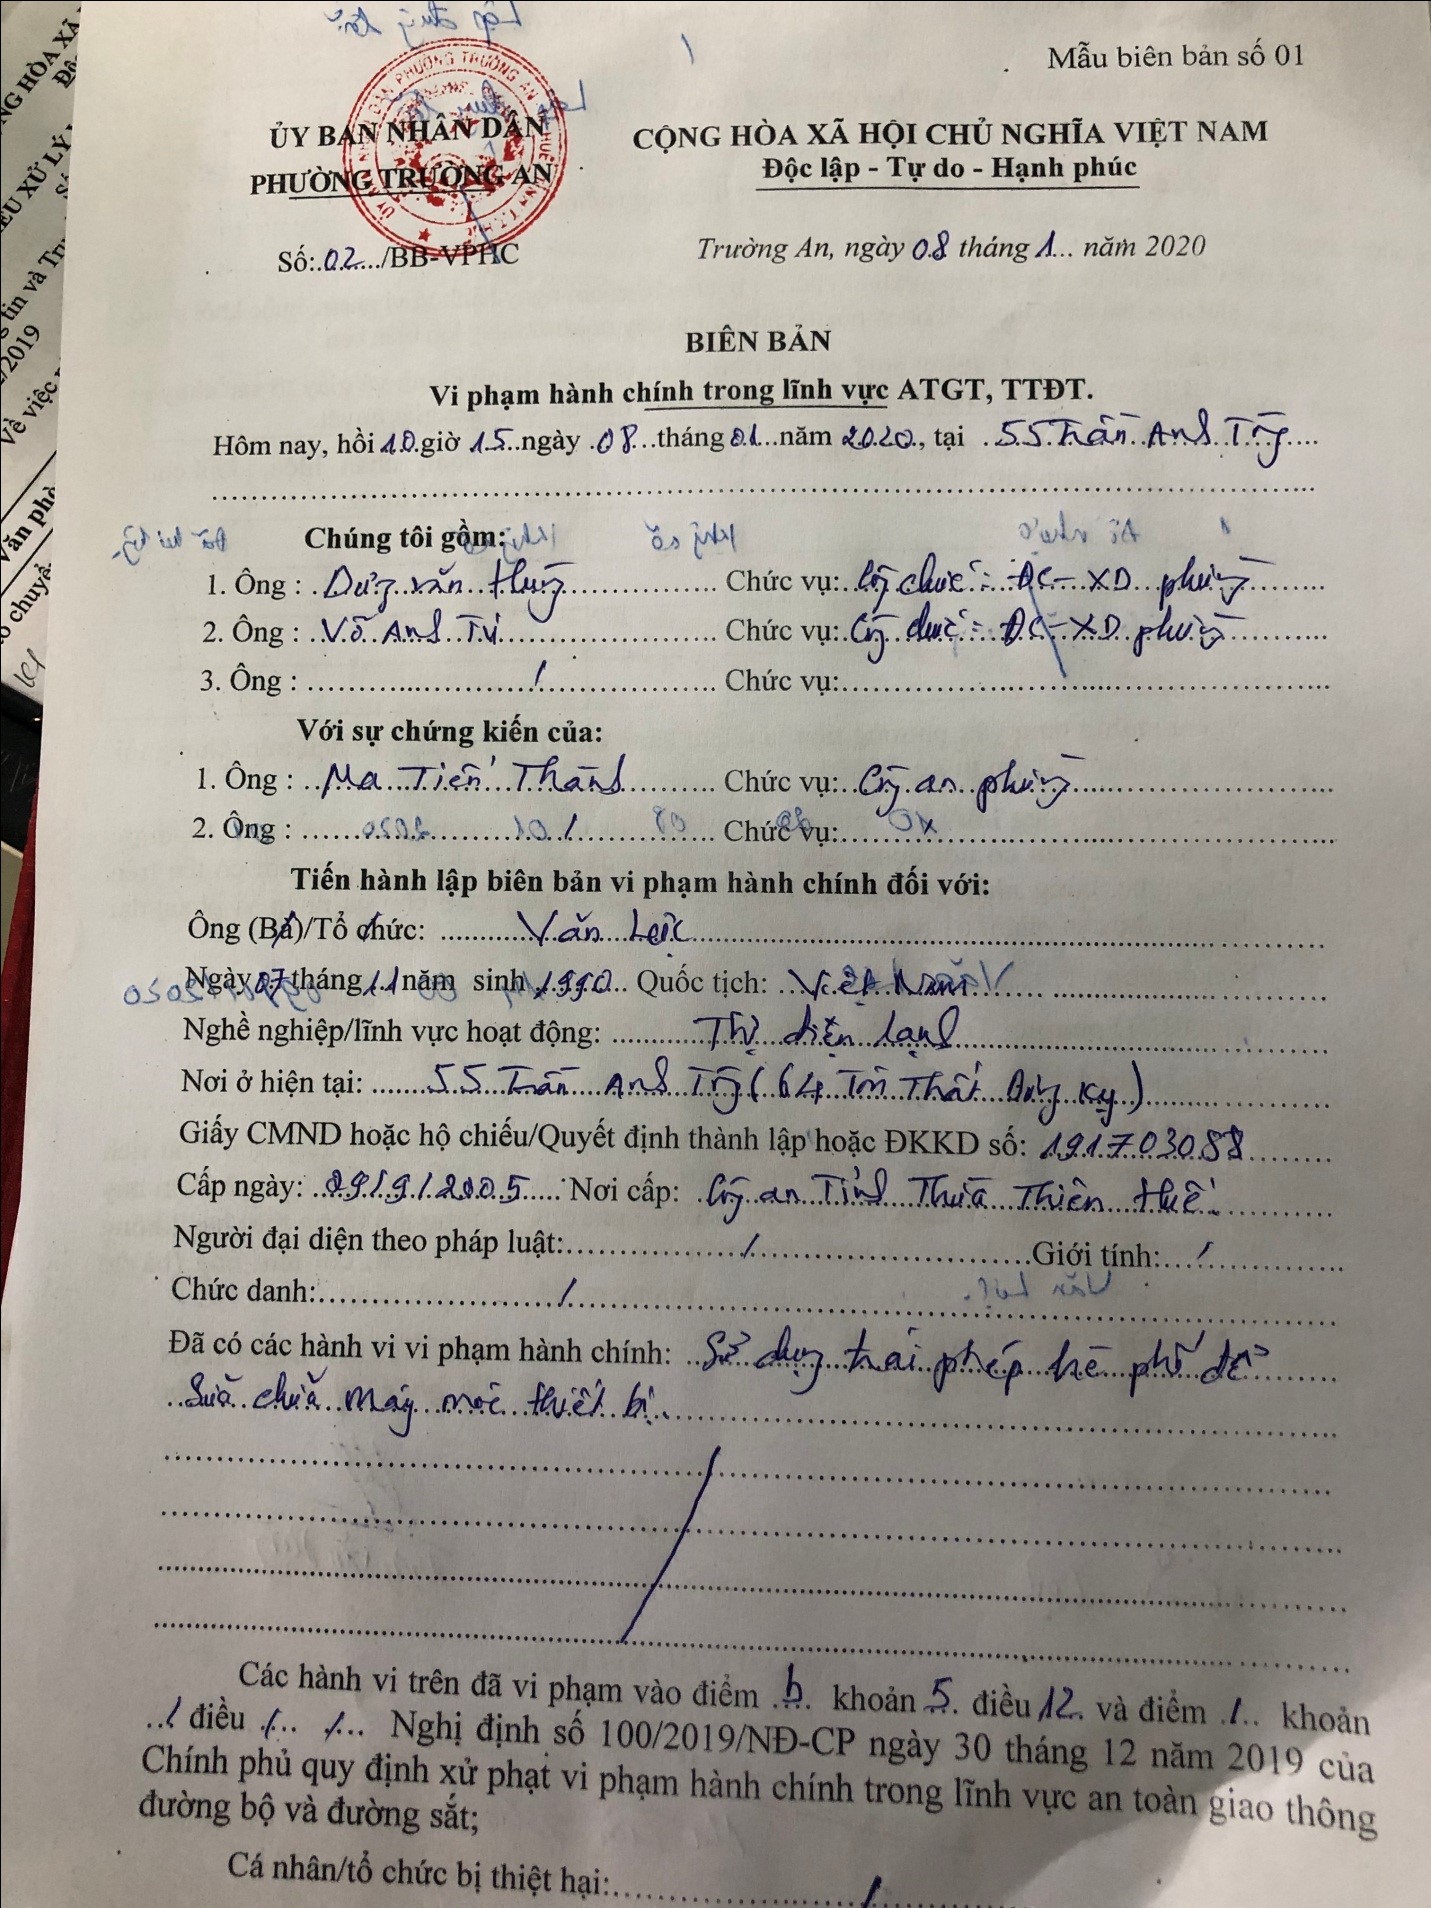 Mẫu biên bản số 01
ỦY BAN NHÂN DÂN
PHƯỜNG TRƯỜNG AN
CỘNG HÒA XÃ HỘI CHỦ NGHĨA VIỆT NAM
Độc lập - Tự do - Hạnh phúc
Số: 02 /BB-VPHC
Trường An, ngày 08 tháng 1 năm 2020
BIÊN BẢN
Vi phạm hành chính trong lĩnh vực ATGT, TTĐT.
Hôm nay, hồi 10 giờ 15 ngày 08 tháng 01 năm 2020, tại 55 Trần Anh Tg
Chúng tôi gồm:
1. Ông : văn Hùng Chức vụ: Cg chức ĐC-XD phường
2. Ông : Võ Anh Chức vụ: Cg chức ĐC-XD phường
3. Ông : / Chức vụ:
Với sự chứng kiến của:
1. Ông : Ma Tiến Thành Chức vụ: Cg an phường
2. Ông : / Chức vụ:
Tiến hành lập biên bản vi phạm hành chính đối với:
Ông (Bà)/Tổ chức: Văn Lực
Ngày 07 tháng 11 năm sinh 1990 Quốc tịch: Việt Nam
Nghề nghiệp/lĩnh vực hoạt động: Thợ điện lạnh
Nơi ở hiện tại: 55 Trần Anh Tg (64 Tôn Thất Ky)
Giấy CMND hoặc hộ chiếu/Quyết định thành lập hoặc ĐKKD số: 191703088
Cấp ngày: 09/9/2005 Nơi cấp: Cg an Tỉnh Thừa Thiên Huế.
Người đại diện theo pháp luật: / Giới tính: /
Chức danh: /
Đã có các hành vi vi phạm hành chính: Sử dụng trái phép hè phố để
sửa chữa máy móc thiết bị.
Các hành vi trên đã vi phạm vào điểm b khoản 5 điều 12 và điểm / khoản
/ điều / / Nghị định số 100/2019/NĐ-CP ngày 30 tháng 12 năm 2019 của
Chính phủ quy định xử phạt vi phạm hành chính trong lĩnh vực an toàn giao thông
đường bộ và đường sắt;
Cá nhân/tổ chức bị thiệt hại: /